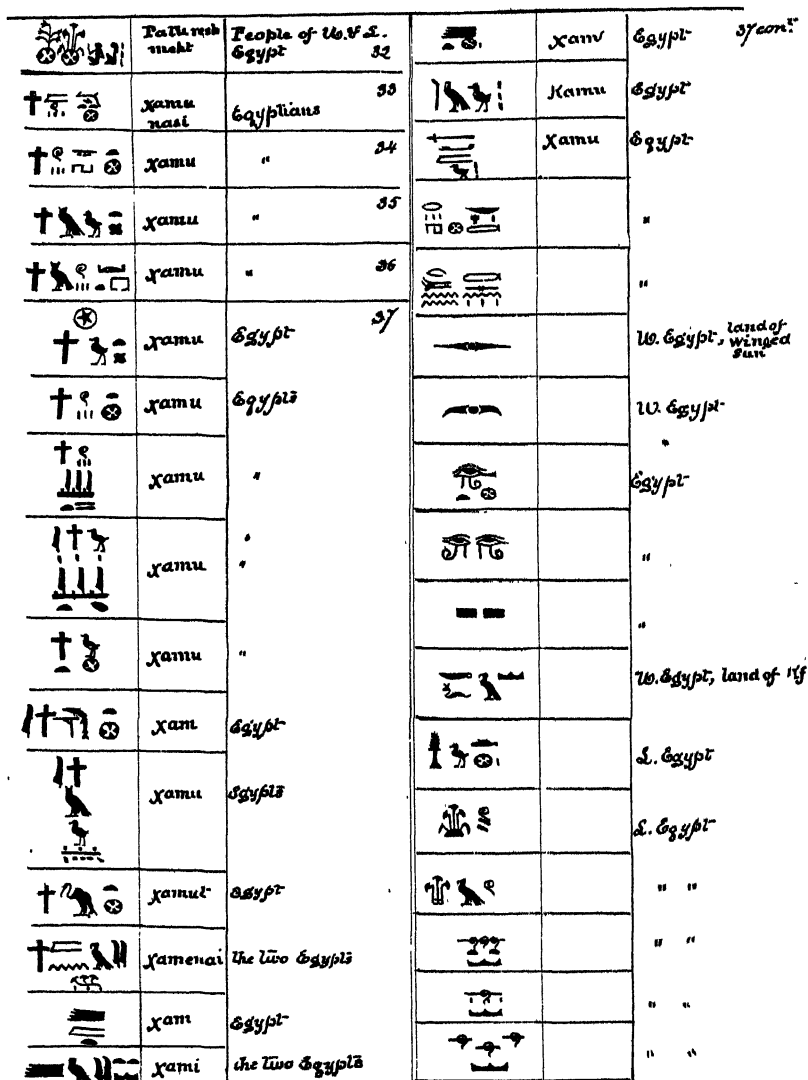 Patu resh People of U. & L.
meht Egypt 32
xamu 33
nasi Egyptians
xamu " 34
xamu " 35
xamu " 36
xamu Egypt 37
xamu Egypts
xamu "
"
xamu "
xamu "
xam Egypt
xamu Egypts
xamut Egypt
xamenai the two Egypts
xam Egypt
xami the two Egypts
xam Egypt 37 con.
Kamu Egypt
xamu Egypt
"
"
U. Egypt, land of
winged
sun
U. Egypt
"
Egypt
"
"
U. Egypt, land of
L. Egypt
L. Egypt
" "
" "
" "
" "